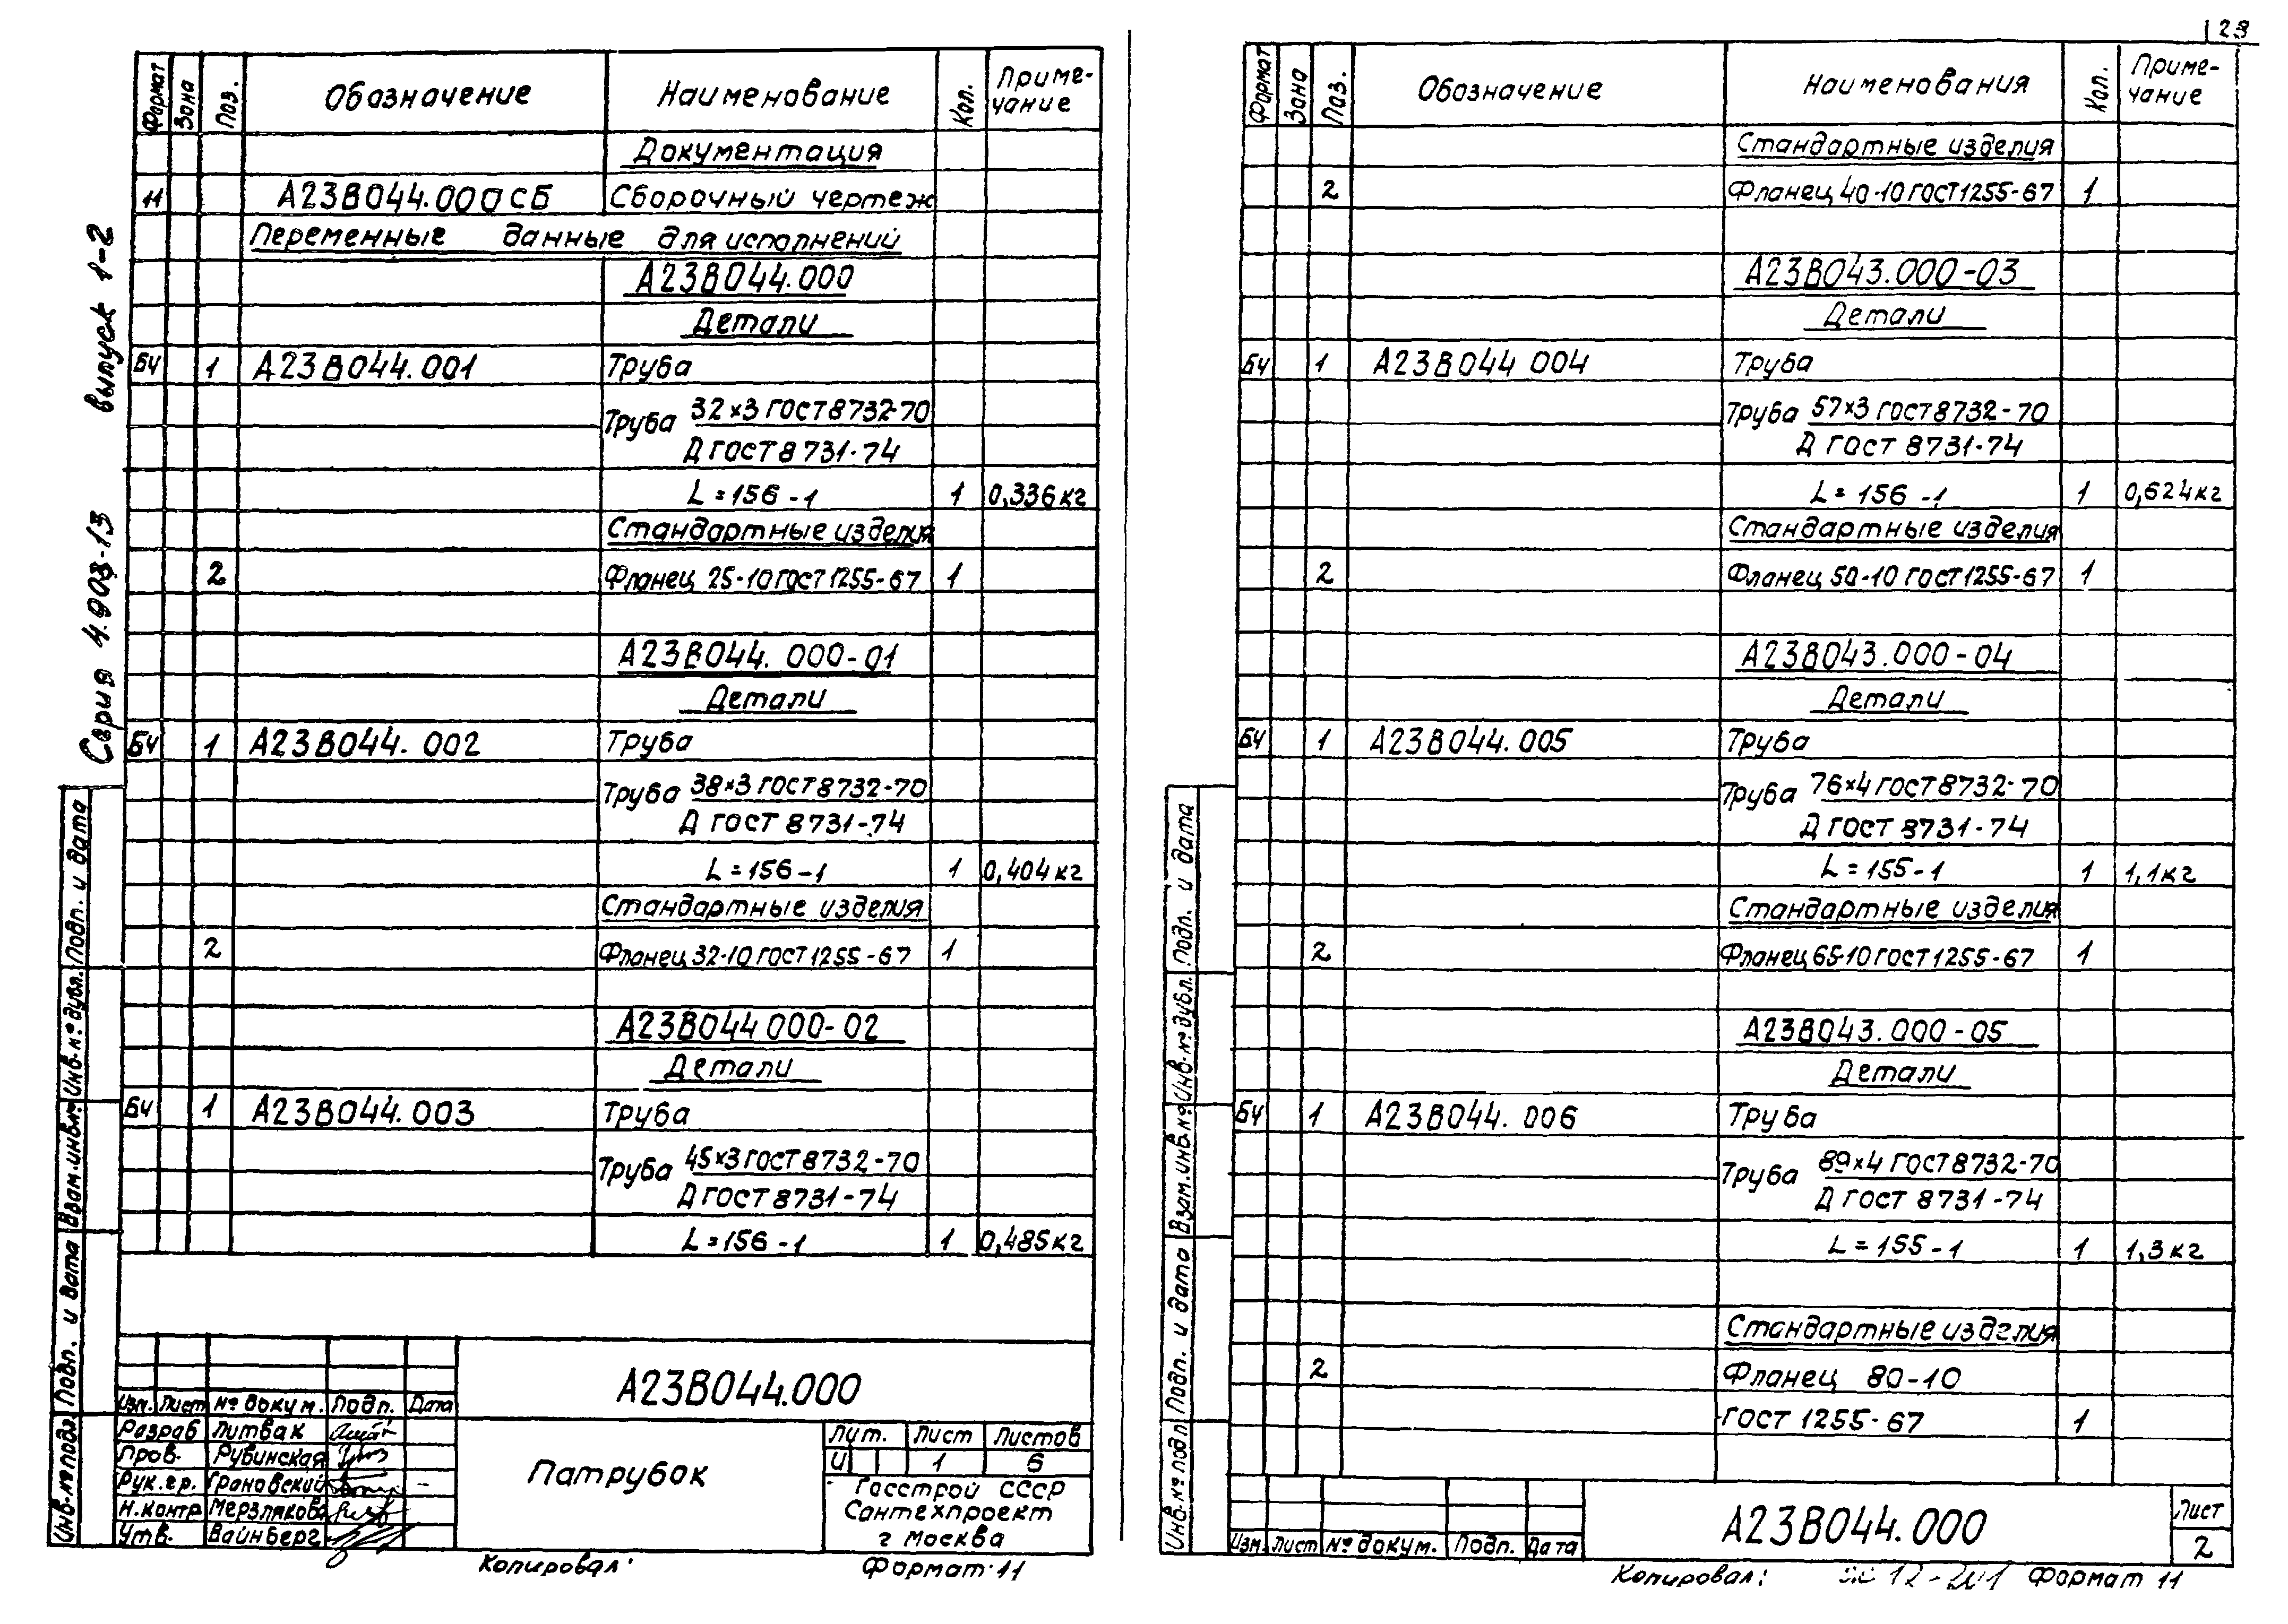 23
Серия 4.903-13 выпуск 1-2
Формат Зона Поз. Обозначение Наименование Кол. Приме-
чание
Документация
11 А23В044.000СБ Сборочный чертеж
Переменные данные для исполнений
А23В044.000
Детали
БЧ 1 А23В044.001 Труба
Труба 32×3 ГОСТ 8732-70
Д ГОСТ 8731-74
L=156-1 1 0,336кг
Стандартные изделия
2 Фланец 25-10 ГОСТ 1255-67 1
А23В044.000-01
Детали
БЧ 1 А23В044.002 Труба
Труба 38×3 ГОСТ 8732-70
Д ГОСТ 8731-74
L=156-1 1 0,404кг
Стандартные изделия
2 Фланец 32-10 ГОСТ 1255-67 1
А23В044 000-02
Детали
БЧ 1 А23В044.003 Труба
Труба 45×3 ГОСТ 8732-70
Д ГОСТ 8731-74
L=156-1 1 0,485кг
Инв.№подл Подп. и дата Взам.инв.№ Инв.№дубл. Подп. и дата
А23В044.000
Изм. Лист № докум. Подп. Дата
Разраб Литвак
Пров. Рубинская
Рук.гр. Грановский
Н.контр Мерзлякова
Утв. Вайнберг
Патрубок
Лит. Лист Листов
И 1 6
Госстрой СССР
Сантехпроект
г Москва
Копировал: Формат 11
Формат Зона Поз. Обозначение Наименования Кол. Приме-
чание
Стандартные изделия
2 Фланец 40-10 ГОСТ 1255-67 1
А23В043.000-03
Детали
БЧ 1 А23В044 004 Труба
Труба 57×3 ГОСТ 8732-70
Д ГОСТ 8731-74
L=156-1 1 0,624кг
Стандартные изделия
2 Фланец 50-10 ГОСТ 1255-67 1
А23В043.000-04
Детали
БЧ 1 А23В044.005 Труба
Труба 76×4 ГОСТ 8732-70
Д ГОСТ 8731-74
L=155-1 1 1,1кг
Стандартные изделия
2 Фланец 65-10 ГОСТ 1255-67 1
А23В043.000-05
Детали
БЧ 1 А23В044.006 Труба
Труба 89×4 ГОСТ 8732-70
Д ГОСТ 8731-74
L=155-1 1 1,3кг
Стандартные изделия
2 Фланец 80-10
ГОСТ 1255-67 1
Инв.№подл Подп. и дата Взам.инв.№ Инв.№дубл. Подп. и дата
Изм. Лист № докум. Подп. Дата
А23В044.000
Лист
2
Копировал: 12-201 Формат 11